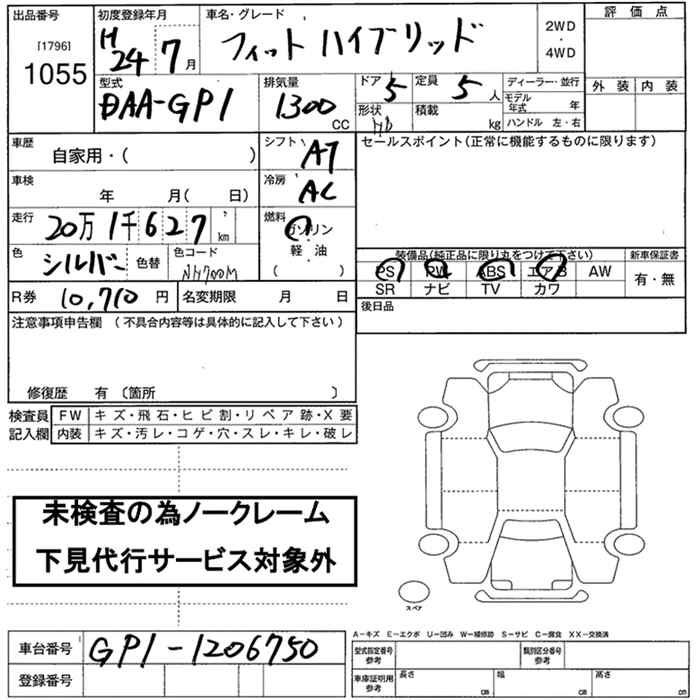 出品番号
[1796]
1055
初度登録年月
H
24 7 月
車名・グレード
フィット ハイブリッド
2WD
・
4WD
評価点
外装 内装
型式
DAA-GP1
排気量
1300
CC
ドア
5
定員
5
人
形状
HB
積載
kg
ディーラー・並行
モデル
年式 年
ハンドル 左・右
車歴
自家用・( )
シフト
AT
セールスポイント(正常に機能するものに限ります)
車検
年 月( 日)
冷房
AC
走行
20万 1千 6 2 7
km
燃料
ガソリン
・
軽・油
( )
色
シルバー
色替
色コード
NH700M
装備品(純正品に限り丸をつけて下さい)
PS PW ABS エアB AW
SR ナビ TV カワ
新車保証書
有・無
R券 10,710 円
名変期限 月 日
後日品
注意事項申告欄 (不具合内容等は具体的に記入して下さい)
修復歴 有 〔箇所 〕
検査員
記入欄
FW キズ・飛石・ヒビ割・リペア跡・X要
内装 キズ・汚レ・コゲ・穴・スレ・キレ・破レ
未検査の為ノークレーム
下見代行サービス対象外
スペア
A-キズ E-エクボ U-凹み W-補修跡 S-サビ C-腐食 XX-交換済
車台番号 GP1-1206750
登録番号
型式指定番号
参考
類別区分番号
参考
車庫証明用
参考
長さ cm
幅 cm
高さ cm